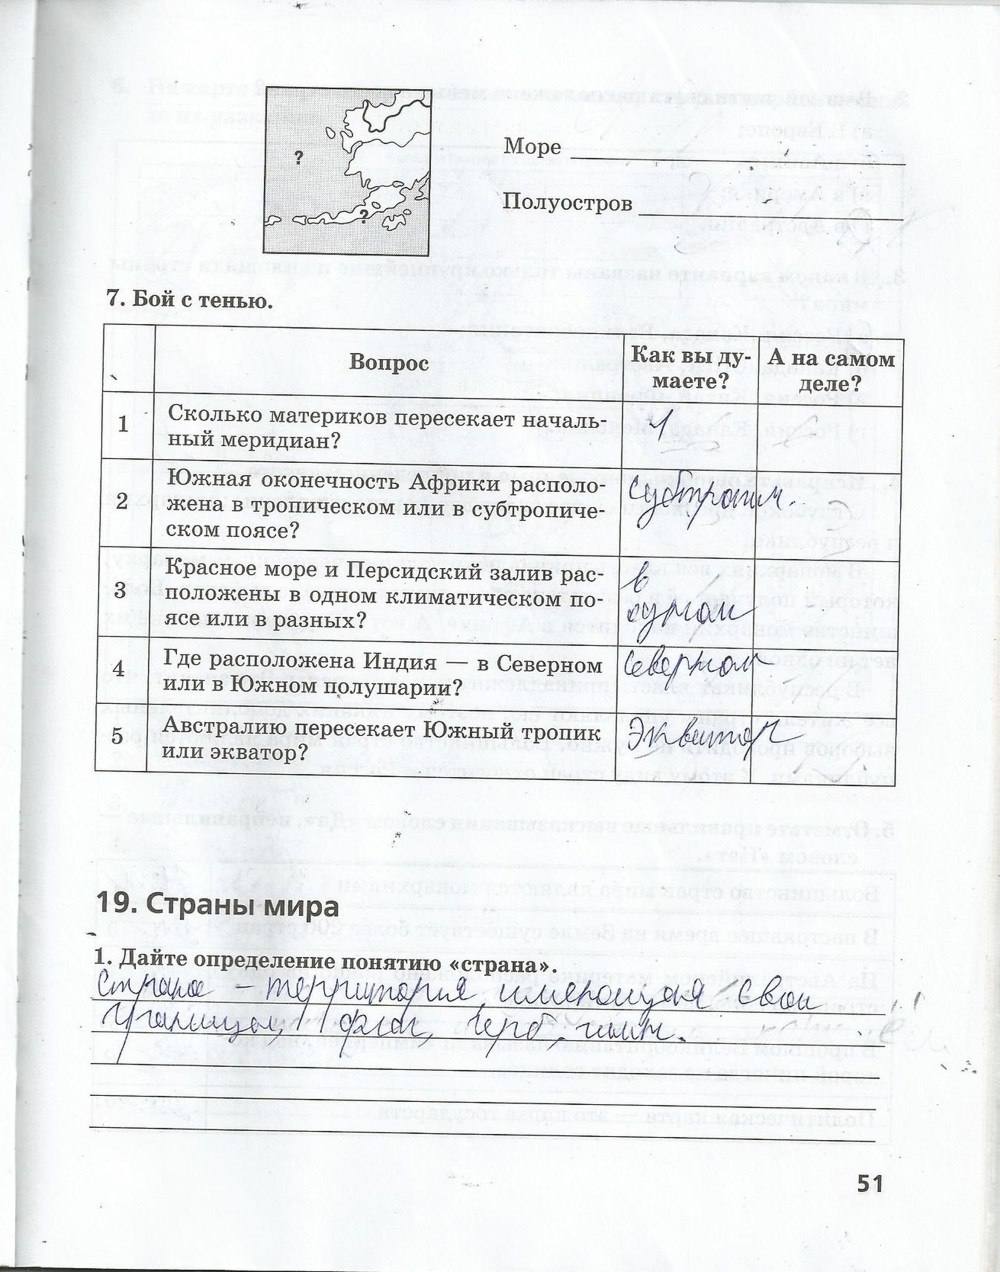 ?
?
Море
Полуостров
7. Бой с тенью.
Вопрос
Как вы ду-
маете?
А на самом
деле?
1
Сколько материков пересекает началь-
ный меридиан?
2
Южная оконечность Африки располо-
жена в тропическом или в субтропиче-
ском поясе?
субтропич.
3
Красное море и Персидский залив рас-
положены в одном климатическом по-
ясе или в разных?
в
4
Где расположена Индия — в Северном
или в Южном полушарии?
Северном
5
Австралию пересекает Южный тропик
или экватор?
Экватор
19. Страны мира
1. Дайте определение понятию «страна».
Страна – территория имеющая свои
границы, флаг, герб, гимн.
51